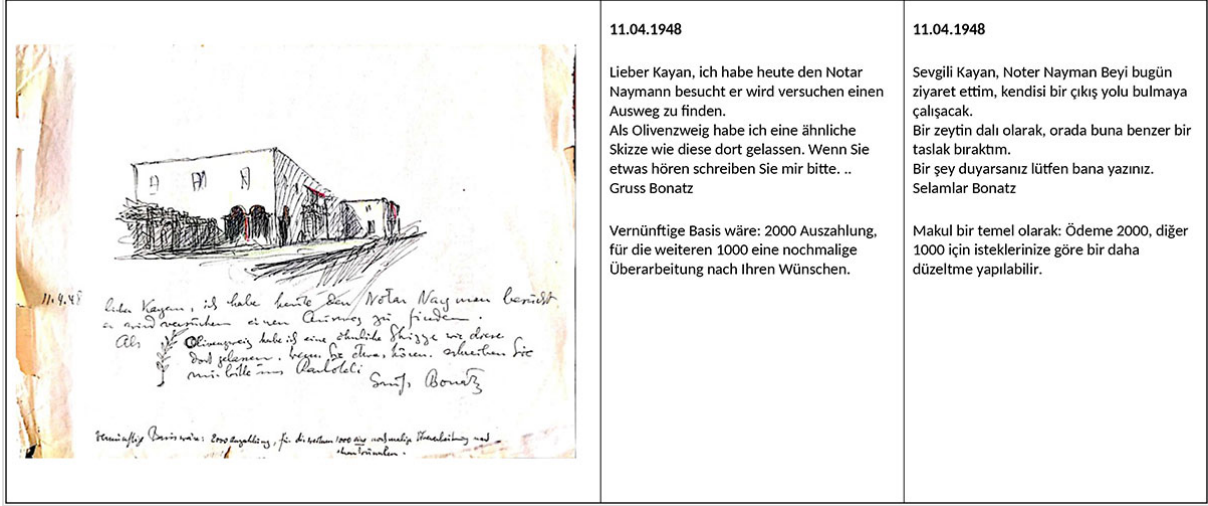 11.4.48
lieber Kayan, ich habe heute den Notar Nayman besucht
er wird versuchen einen Ausweg zu finden.
Als Olivenzweig habe ich eine ähnliche Skizze wie diese
dort gelassen. Wenn Sie etwas hören. schreiben Sie
mir bitte ins
Gruß Bonatz
Vernünftige Basis wäre: 2000 Anzahlung, für die weiteren 1000 eine nochmalige Überarbeitung nach
Ihren Wünschen.
11.04.1948
Lieber Kayan, ich habe heute den Notar
Naymann besucht er wird versuchen einen
Ausweg zu finden.
Als Olivenzweig habe ich eine ähnliche
Skizze wie diese dort gelassen. Wenn Sie
etwas hören schreiben Sie mir bitte. ..
Gruss Bonatz
Vernünftige Basis wäre: 2000 Auszahlung,
für die weiteren 1000 eine nochmalige
Überarbeitung nach Ihren Wünschen.
11.04.1948
Sevgili Kayan, Noter Nayman Beyi bugün
ziyaret ettim, kendisi bir çıkış yolu bulmaya
çalışacak.
Bir zeytin dalı olarak, orada buna benzer bir
taslak bıraktım.
Bir şey duyarsanız lütfen bana yazınız.
Selamlar Bonatz
Makul bir temel olarak: Ödeme 2000, diğer
1000 için isteklerinize göre bir daha
düzeltme yapılabilir.